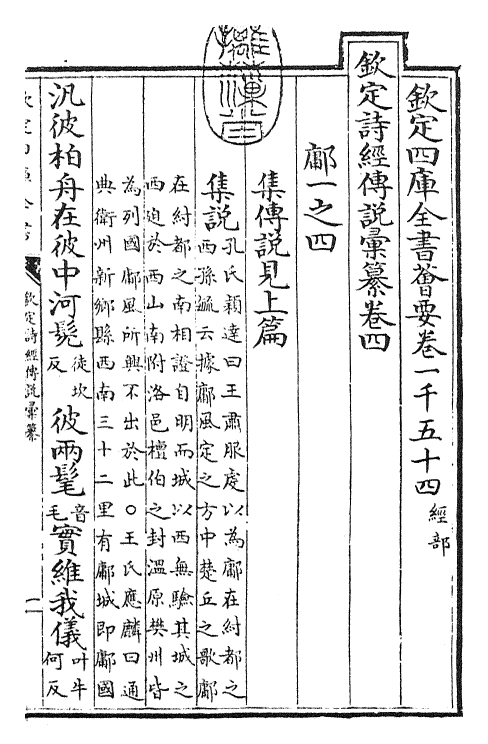 欽定四庫全書薈要卷一千五十四 經部
欽定詩經傳說彚纂卷四
鄘一之四
集傳說見上篇
集說 孔氏穎達曰王肅服虔以為鄘在紂都之
西孫毓云據鄘風定之方中楚丘之歌鄘
在紂都之南相證自明而城以西無驗其城之
西迫於西山南附洛邑檀伯之封溫原樊州皆
為列國鄘風所興不出於此○王氏應麟曰通
典衛州新鄉縣西南三十二里有鄘城即鄘國
汎彼柏舟在彼中河髧徒坎反彼兩髦音毛實維我儀叶牛何反
欽定詩經傳說彚纂